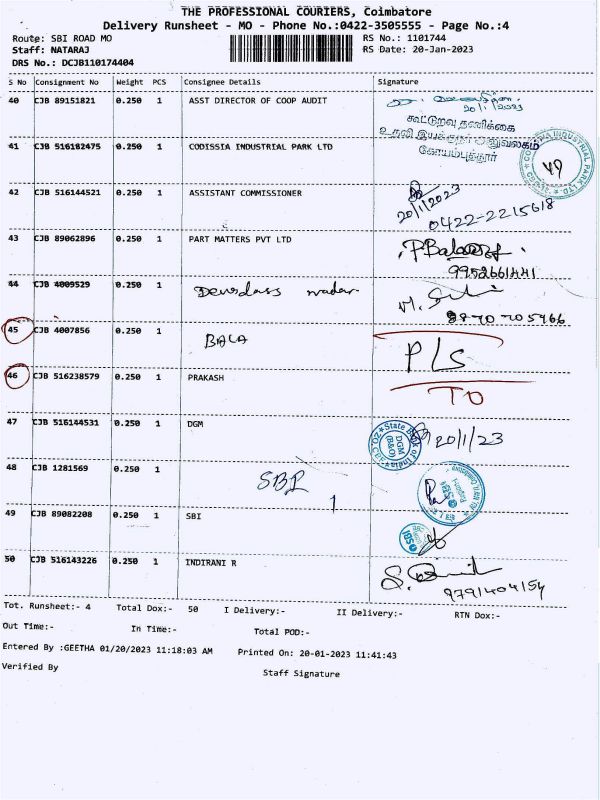 THE PROFESSIONAL COURIERS, Coimbatore
Delivery Runsheet - MO - Phone No.:0422-3505555 - Page No.:4
Route: SBI ROAD MO
RS No.: 1101744
Staff: NATARAJ
RS Date: 20-Jan-2023
DRS No.: DCJB110174404
S No Consignment No Weight PCS Consignee Details Signature
40 CJB 89151821 0.250 1 ASST DIRECTOR OF COOP AUDIT
20/1/2023
கூட்டுறவு தணிக்கை
உதவி இயக்குநர் அலுவலகம்
கோயம்புத்தூர்
41 CJB 516182475 0.250 1 CODISSIA INDUSTRIAL PARK LTD
42 CJB 516144521 0.250 1 ASSISTANT COMMISSIONER
20/1/2023
0422-2215618
43 CJB 89062896 0.250 1 PART MATTERS PVT LTD
9952661441
44 CJB 4009529 0.250 1 Devadass nadar
45 CJB 4007856 0.250 1 BALA P/S
46 CJB 516238579 0.250 1 PRAKASH TO
47 CJB 516144531 0.250 1 DGM 20/1/23
State Bank of India
DGM (B&O)
48 CJB 1281569 0.250 1 SBI 1
49 CJB 89082208 0.250 1 SBI
50 CJB 516143226 0.250 1 INDIRANI R
9791404154
Tot. Runsheet:- 4 Total Dox:- 50 I Delivery:- II Delivery:- RTN Dox:-
Out Time:- In Time:- Total POD:-
Entered By :GEETHA 01/20/2023 11:18:03 AM Printed On: 20-01-2023 11:41:43
Verified By Staff Signature